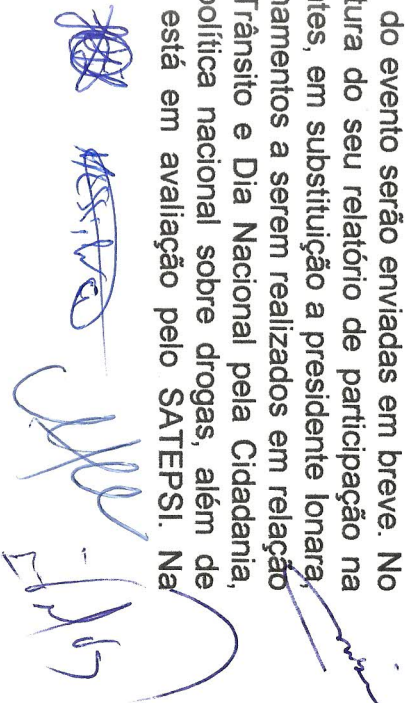 do evento serão enviadas em breve. No
tura do seu relatório de participação na
tes, em substituição a presidente Ionara,
namentos a serem realizados em relação
Trânsito e Dia Nacional pela Cidadania,
política nacional sobre drogas, além de
está em avaliação pelo SATEPSI. Na